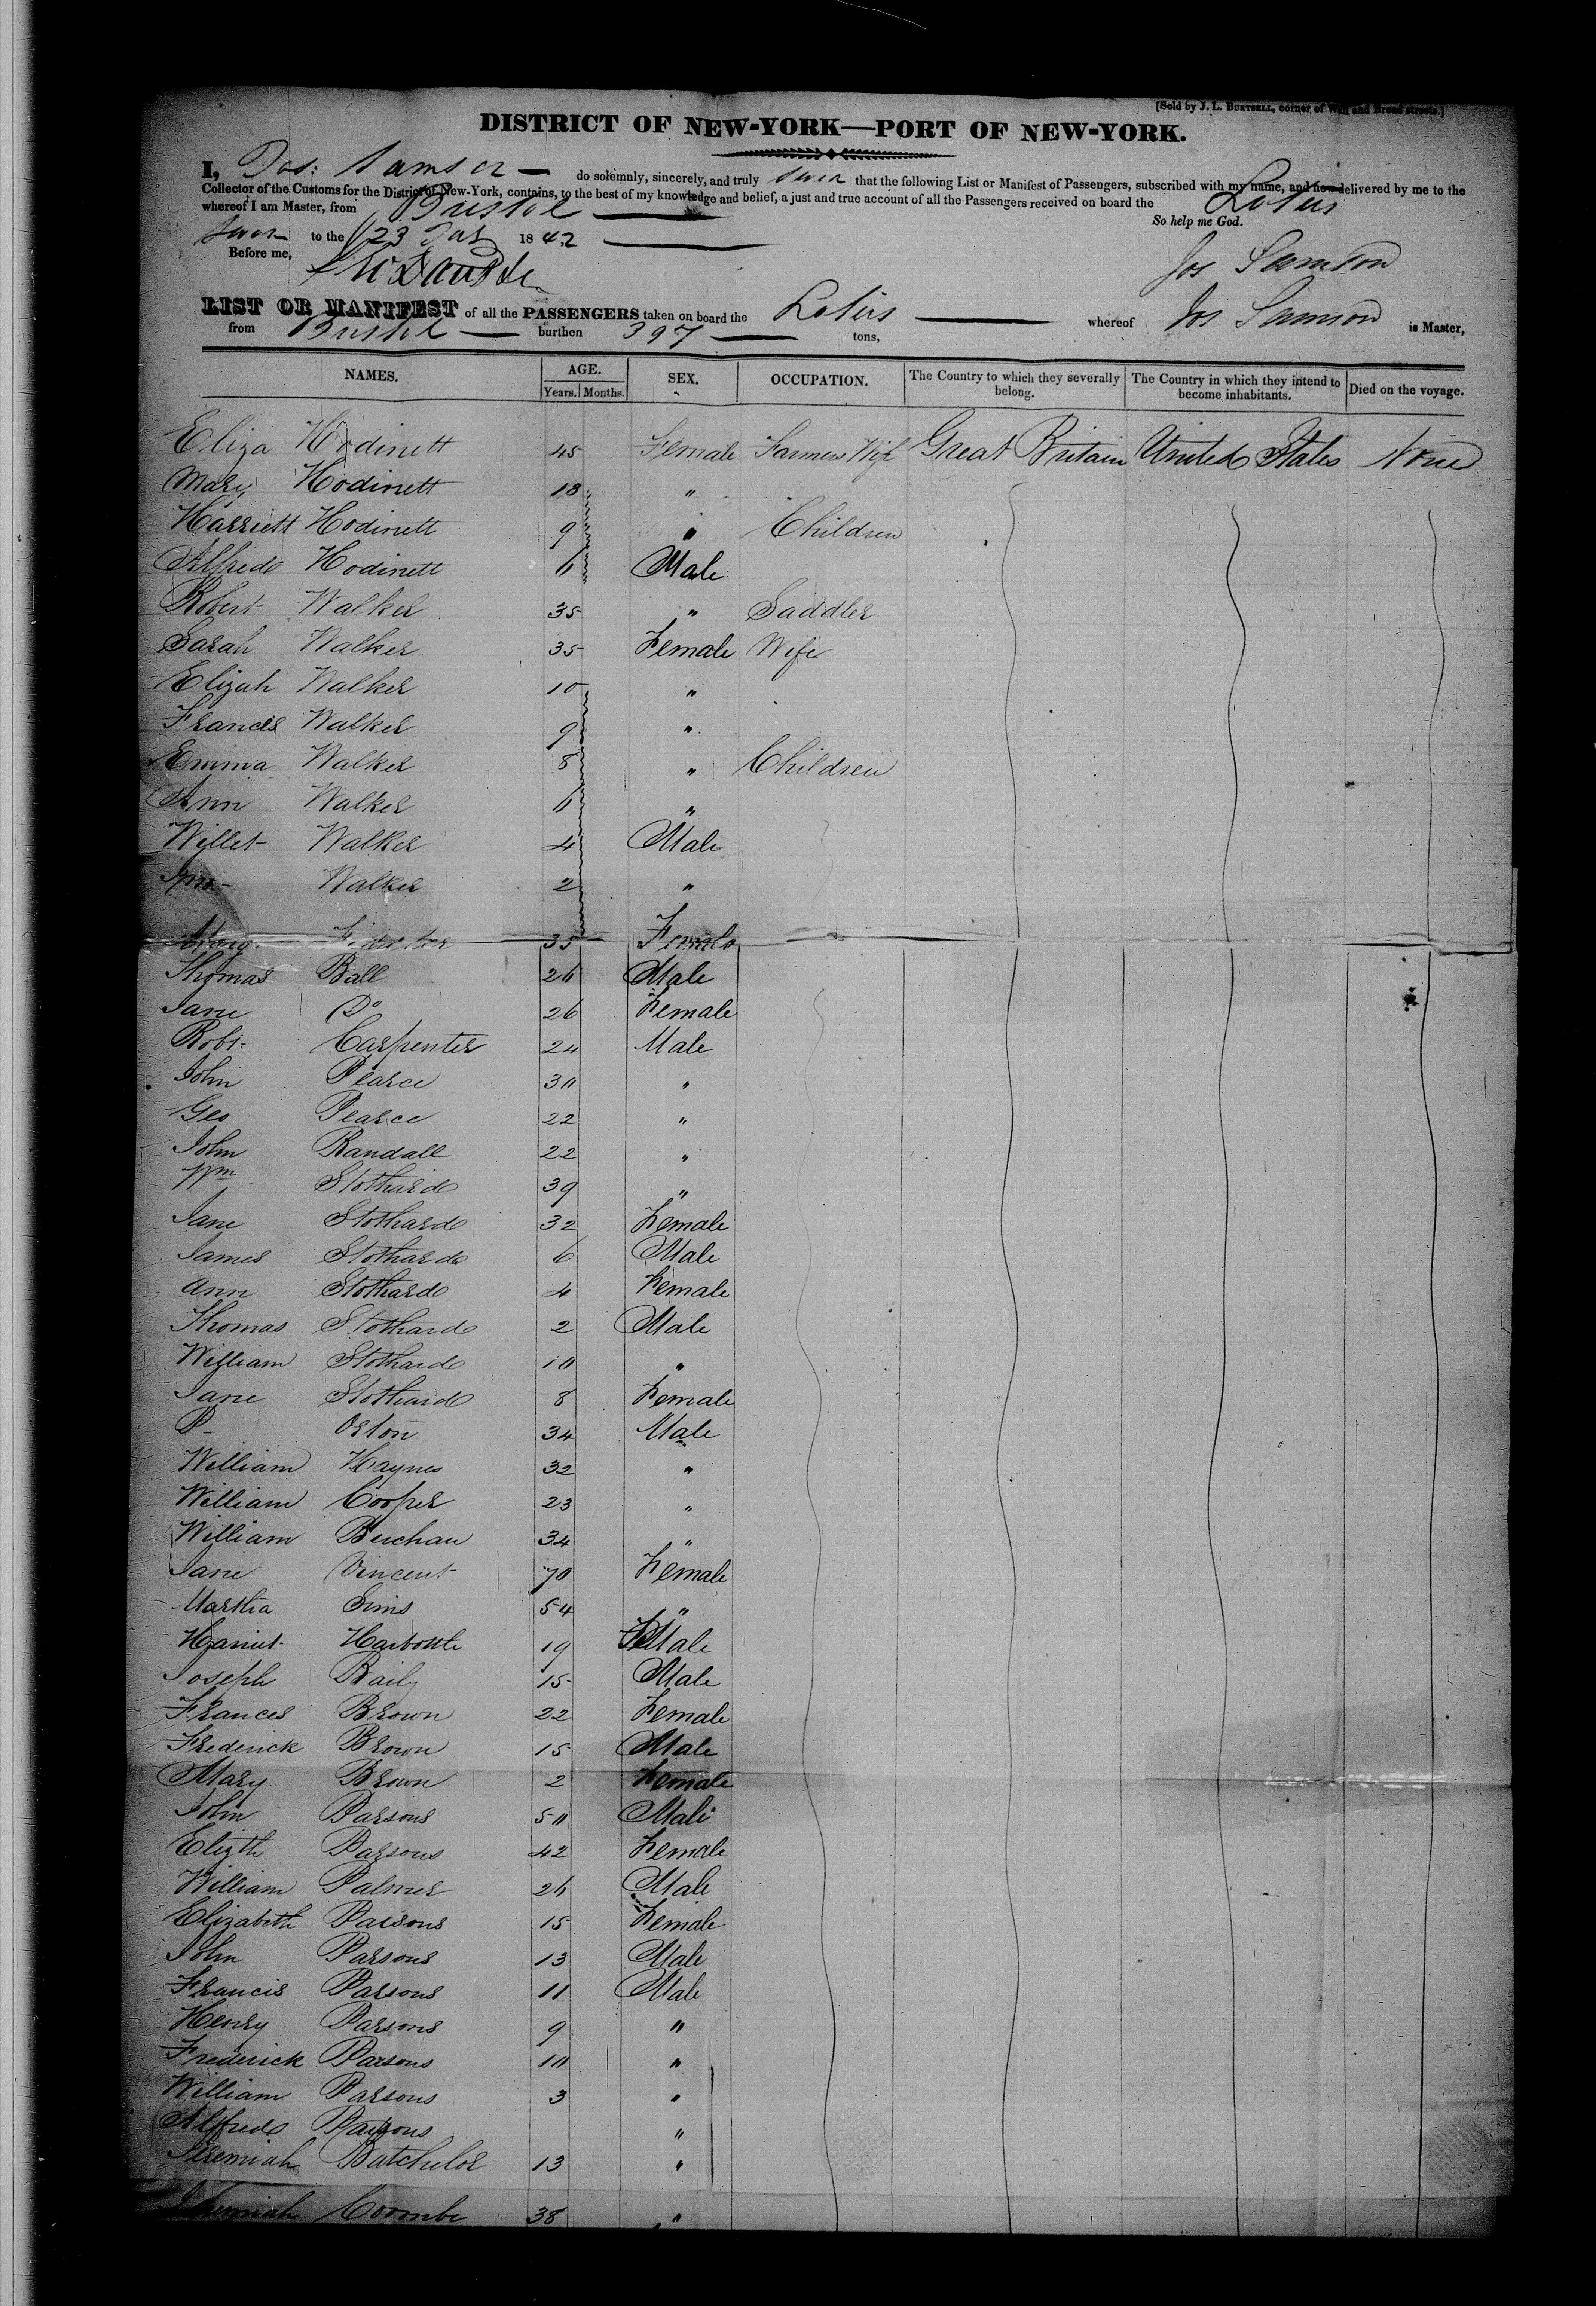 [Sold by J. L. BURTSELL, corner of Wall and Broad streets.]
DISTRICT OF NEW-YORK—PORT OF NEW-YORK.
I, Jos: Samson do solemnly, sincerely, and truly swear that the following List or Manifest of Passengers, subscribed with my name, and now delivered by me to the
Collector of the Customs for the District of New-York, contains, to the best of my knowledge and belief, a just and true account of all the Passengers received on board the Lotus
whereof I am Master, from Bristol
So help me God.
to the 23 1842
Before me,
Jos Samson
LIST OR MANIFEST of all the PASSENGERS taken on board the Lotus whereof Jos Samson is Master,
from Bristol burthen 397 tons,
NAMES. AGE. Years. Months. SEX. OCCUPATION. The Country to which they severally belong. The Country in which they intend to become inhabitants. Died on the voyage.
Eliza Hodinett 45 Female Farmers Wife Great Britain United States None
Mary Hodinett 18 "
Harriett Hodinett 9 " Children
Alfred Hodinett 6 Male
Robert Walker 35 " Saddler
Sarah Walker 35 Female Wife
Elizah Walker 10 "
Frances Walker 9 "
Emma Walker 8 " Children
Ann Walker 6 "
Willet Walker 4 Male
Walker 2 "
35 Female
Thomas Ball 26 Male
Jane Do 26 Female
Robt Carpenter 24 Male
John Pearce 30 "
Geo Pearce 22 "
John Randall 22 "
Wm Stothard 39 "
Jane Stothard 32 Female
James Stothard 6 Male
Ann Stothard 4 Female
Thomas Stothard 2 Male
William Stothard 10 "
Jane Stothard 8 Female
P Orton 34 Male
William Haynes 32 "
William Cooper 23 "
William 34 "
Jane Vincent 70 Female
Martha Sims 54 "
Harriet Harbottle 19
Joseph Baily 15 Male
Frances Brown 22 Female
Frederick Brown 15 Male
Mary Brown 2 Female
John Parsons 50 Male
Elizth Parsons 42 Female
William Palmer 26 Male
Elizabeth Parsons 15 Female
John Parsons 13 Male
Francis Parsons 11 Male
Henry Parsons 9 "
Frederick Parsons 10 "
William Parsons 3 "
Alfred Parsons "
Jeremiah Batchelor 13 "
Coombe 38 "